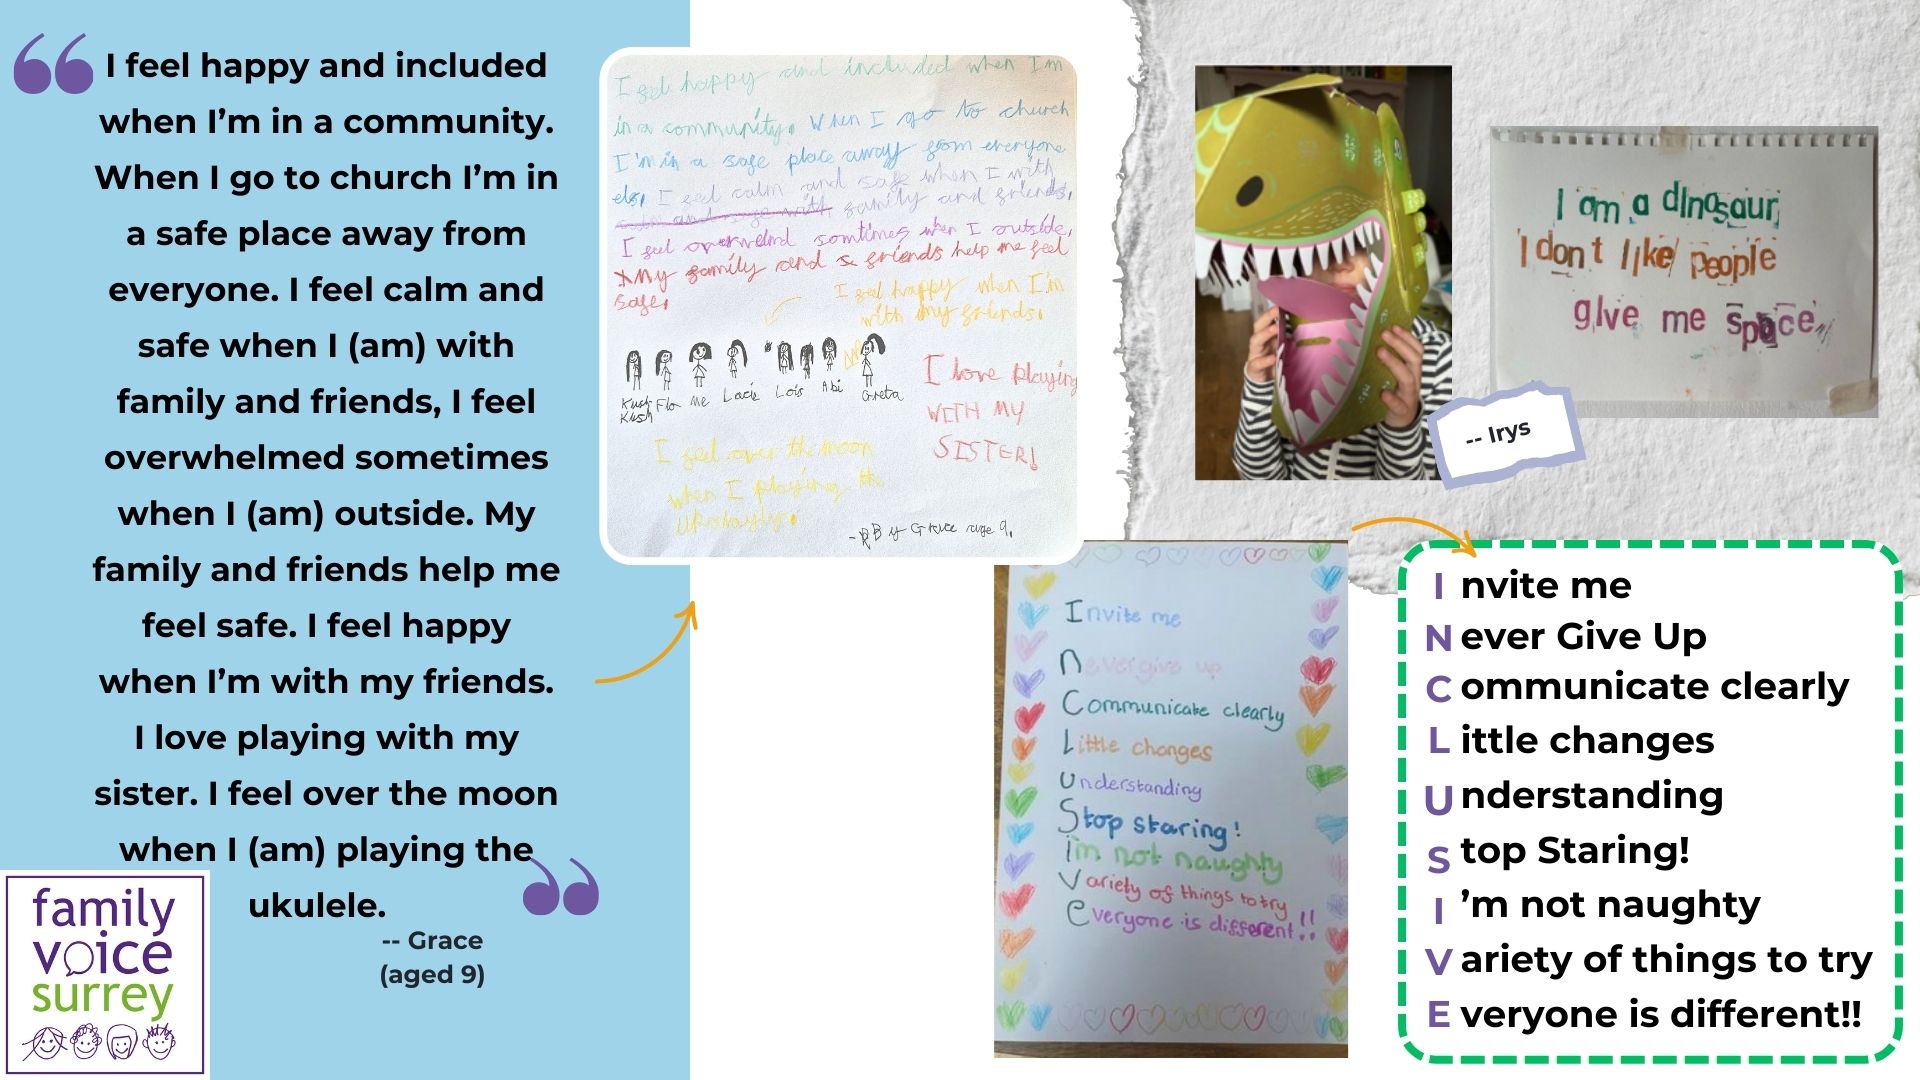 I feel happy and included
when I’m in a community.
When I go to church I’m in
a safe place away from
everyone. I feel calm and
safe when I (am) with
family and friends, I feel
overwhelmed sometimes
when I (am) outside. My
family and friends help me
feel safe. I feel happy
when I’m with my friends.
I love playing with my
sister. I feel over the moon
when I (am) playing the
ukulele.
-- Grace
(aged 9)
family
voice
surrey
I feel happy and included when I'm
in a community. When I go to church
I'm in a safe place away from everyone
els, I feel calm and safe when I with
family and friends,
I feel overwelmd somtimes when I outside,
My family and friends help me feel
safe,
I feel happy when I'm
with my friends.
Kush Flo Me Lacie Lois Abi Greta
Kush
I love playing
WITH MY
SISTER!
I feel over the moon
when I playing the
- By Grace age 9.
I am a dInosaur
I don't lIke people
gIve me space
-- Irys
Invite me
Never give up
Communicate clearly
Little changes
Understanding
Stop staring!
I'm not naughty
Variety of things to try
everyone is different!!
Invite me
Never Give Up
Communicate clearly
Little changes
Understanding
Stop Staring!
I’m not naughty
Variety of things to try
Everyone is different!!